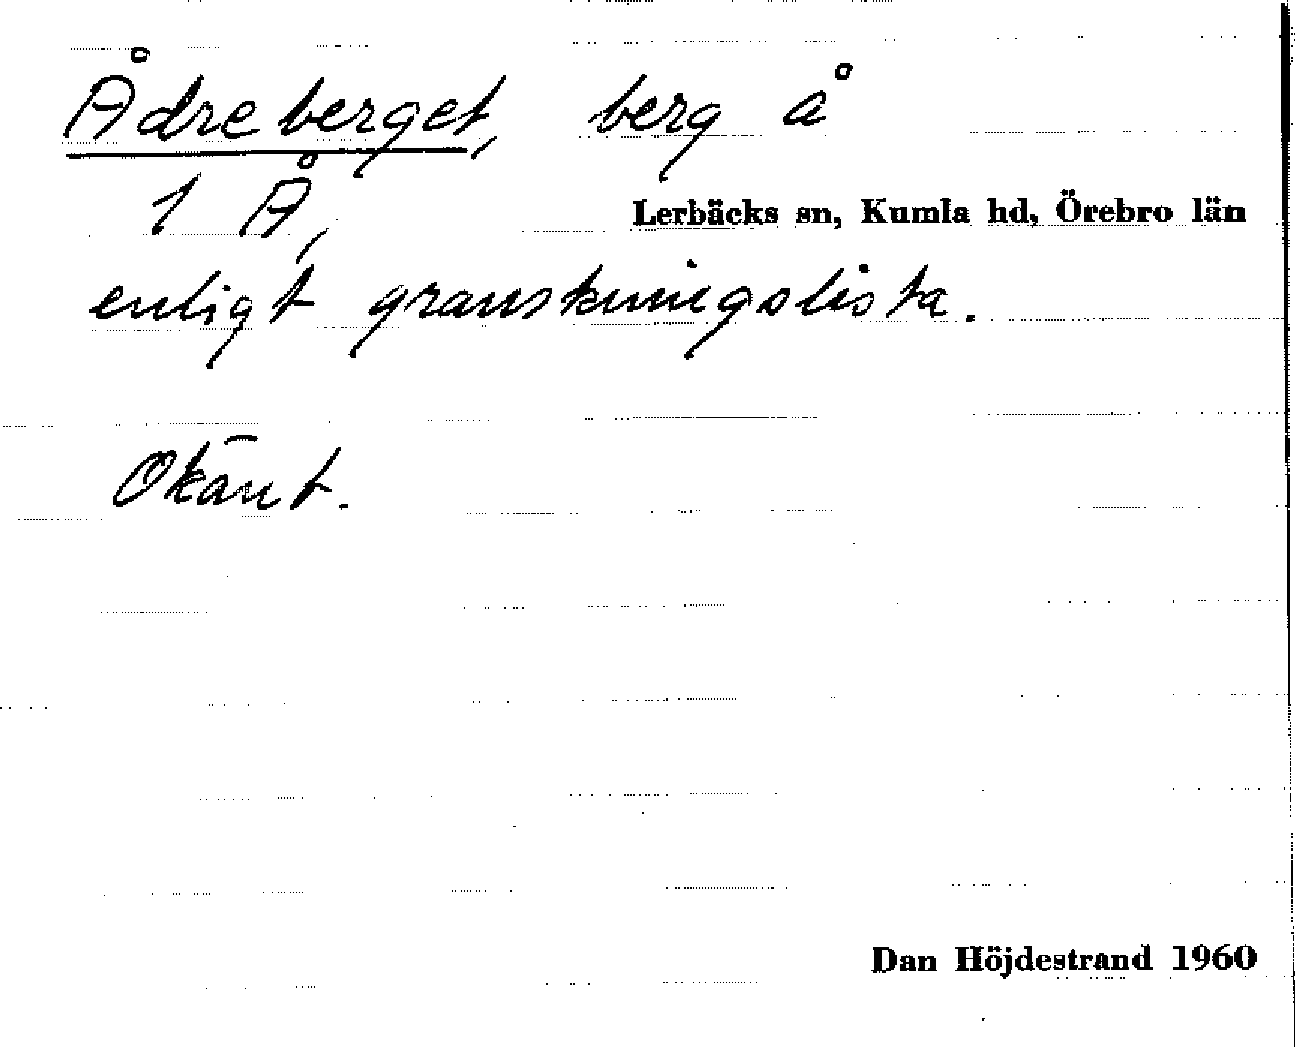 Ådreberget, berg å
1 Å,
Lerbäcks sn, Kumla hd, Örebro län
enligt granskningslista.
Okänt.
Dan Höjdestrand 1960